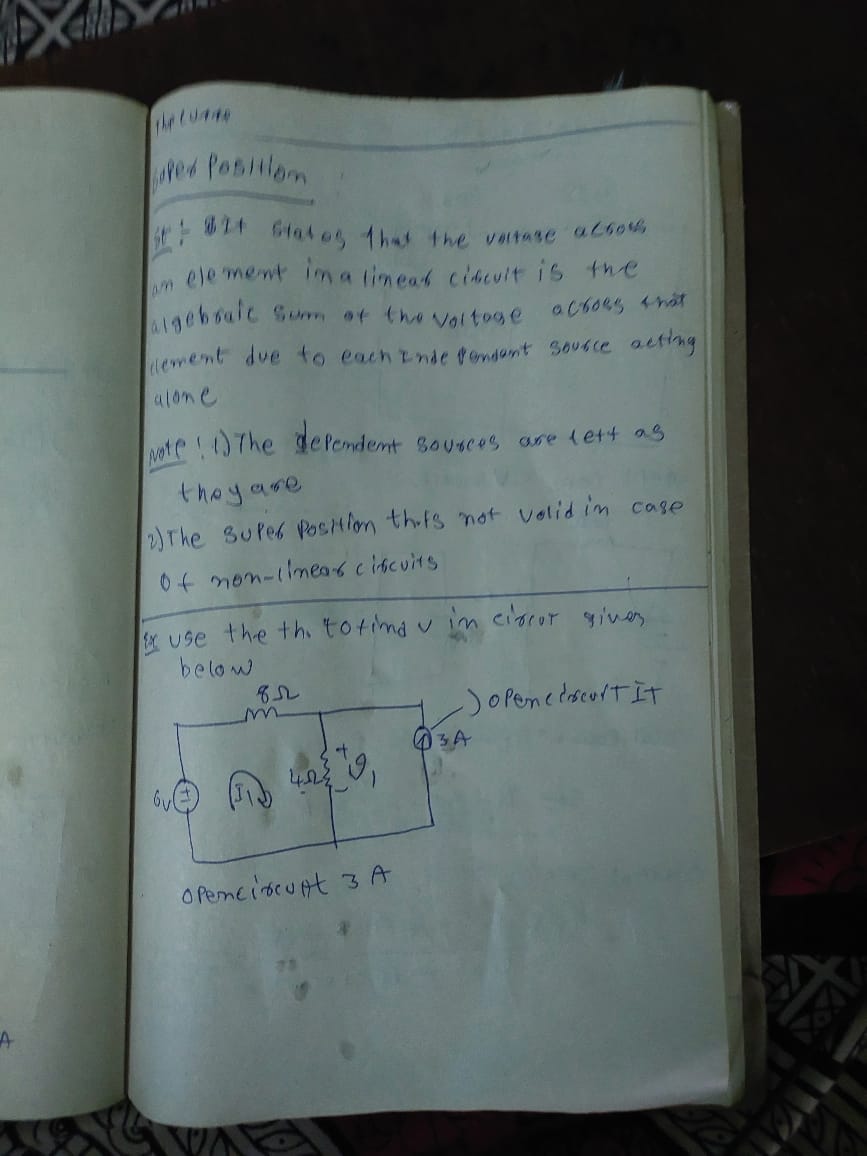 Super Position
St :- It states that the voltage across
an element in a linear circuit is the
algebraic sum of the voltage across that
element due to each Independent source acting
alone
Note : 1) The dependent sources are left as
they are
2) The super position th. is not valid in case
of non-linear circuits
Ex use the th. to find v in circut given
below
8Ω
) open circuit IT
3A
4Ω + v1 -
6v
I1
Open circuit 3 A
A